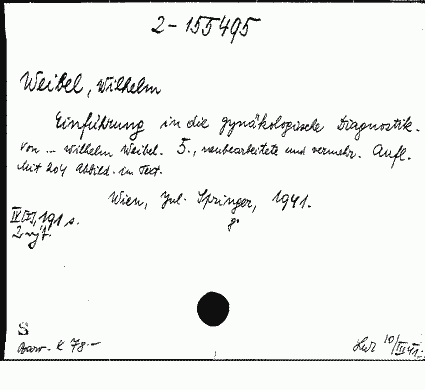 2-155495
Weibel, Wilhelm
Einführung in die gynäkologische Diagnostik.
Von ... Wilhelm Weibel. 5., neubearbeitete und vermehr. Aufl.
Mit 204 Abbild. im Text.
Wien, Jul. Springer, 1941.
IV, 191 s. 8°
S
K 78.-
10/III 41.